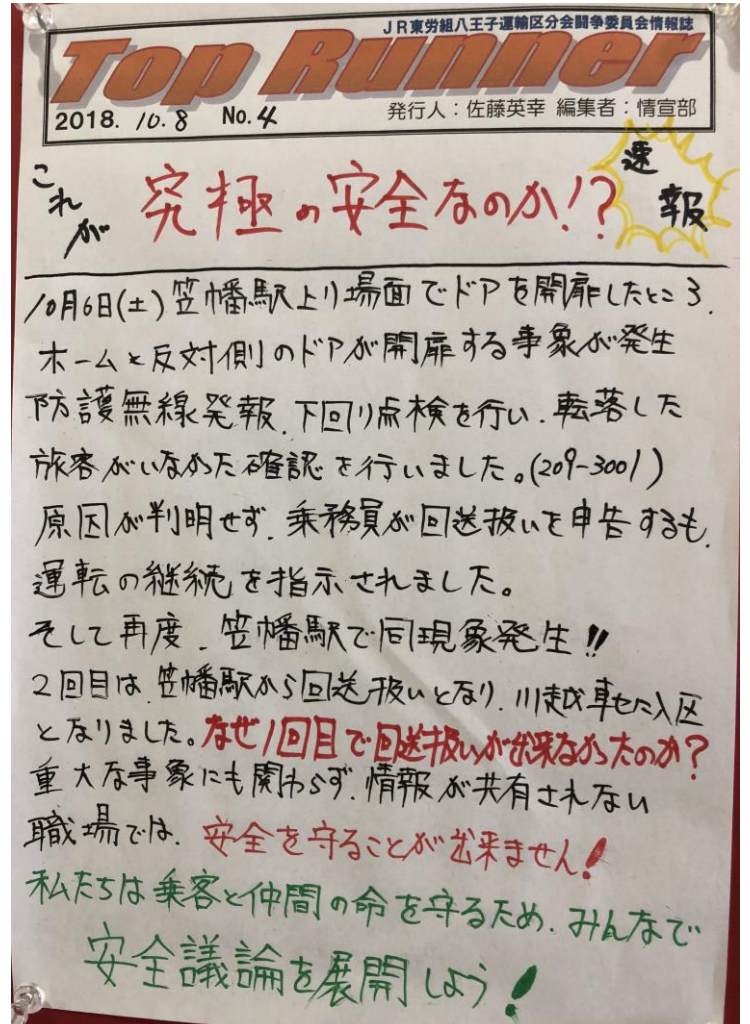 JR東労組八王子運輸区分会闘争委員会情報誌
Top Runner
2018. 10.8 No.4 発行人：佐藤英幸 編集者：情宣部
速報
これが 究極の安全なのか!?
10月6日(土)笠幡駅上り場面でドアを開扉したところ、
ホームと反対側のドアが開扉する事象が発生
防護無線発報、下回り点検を行い、転落した
旅客がいなかった確認を行いました。(209-3001)
原因が判明せず、乗務員が回送扱いを申告するも、
運転の継続を指示されました。
そして再度、笠幡駅で同現象発生!!
2回目は、笠幡駅から回送扱いとなり、川越車セに入区
となりました。なぜ1回目で回送扱いが出来なかったのか?
重大な事象にも関わらず、情報が共有されない
職場では、安全を守ることが出来ません!
私たちは乗客と仲間の命を守るため、みんなで
安全議論を展開しよう!